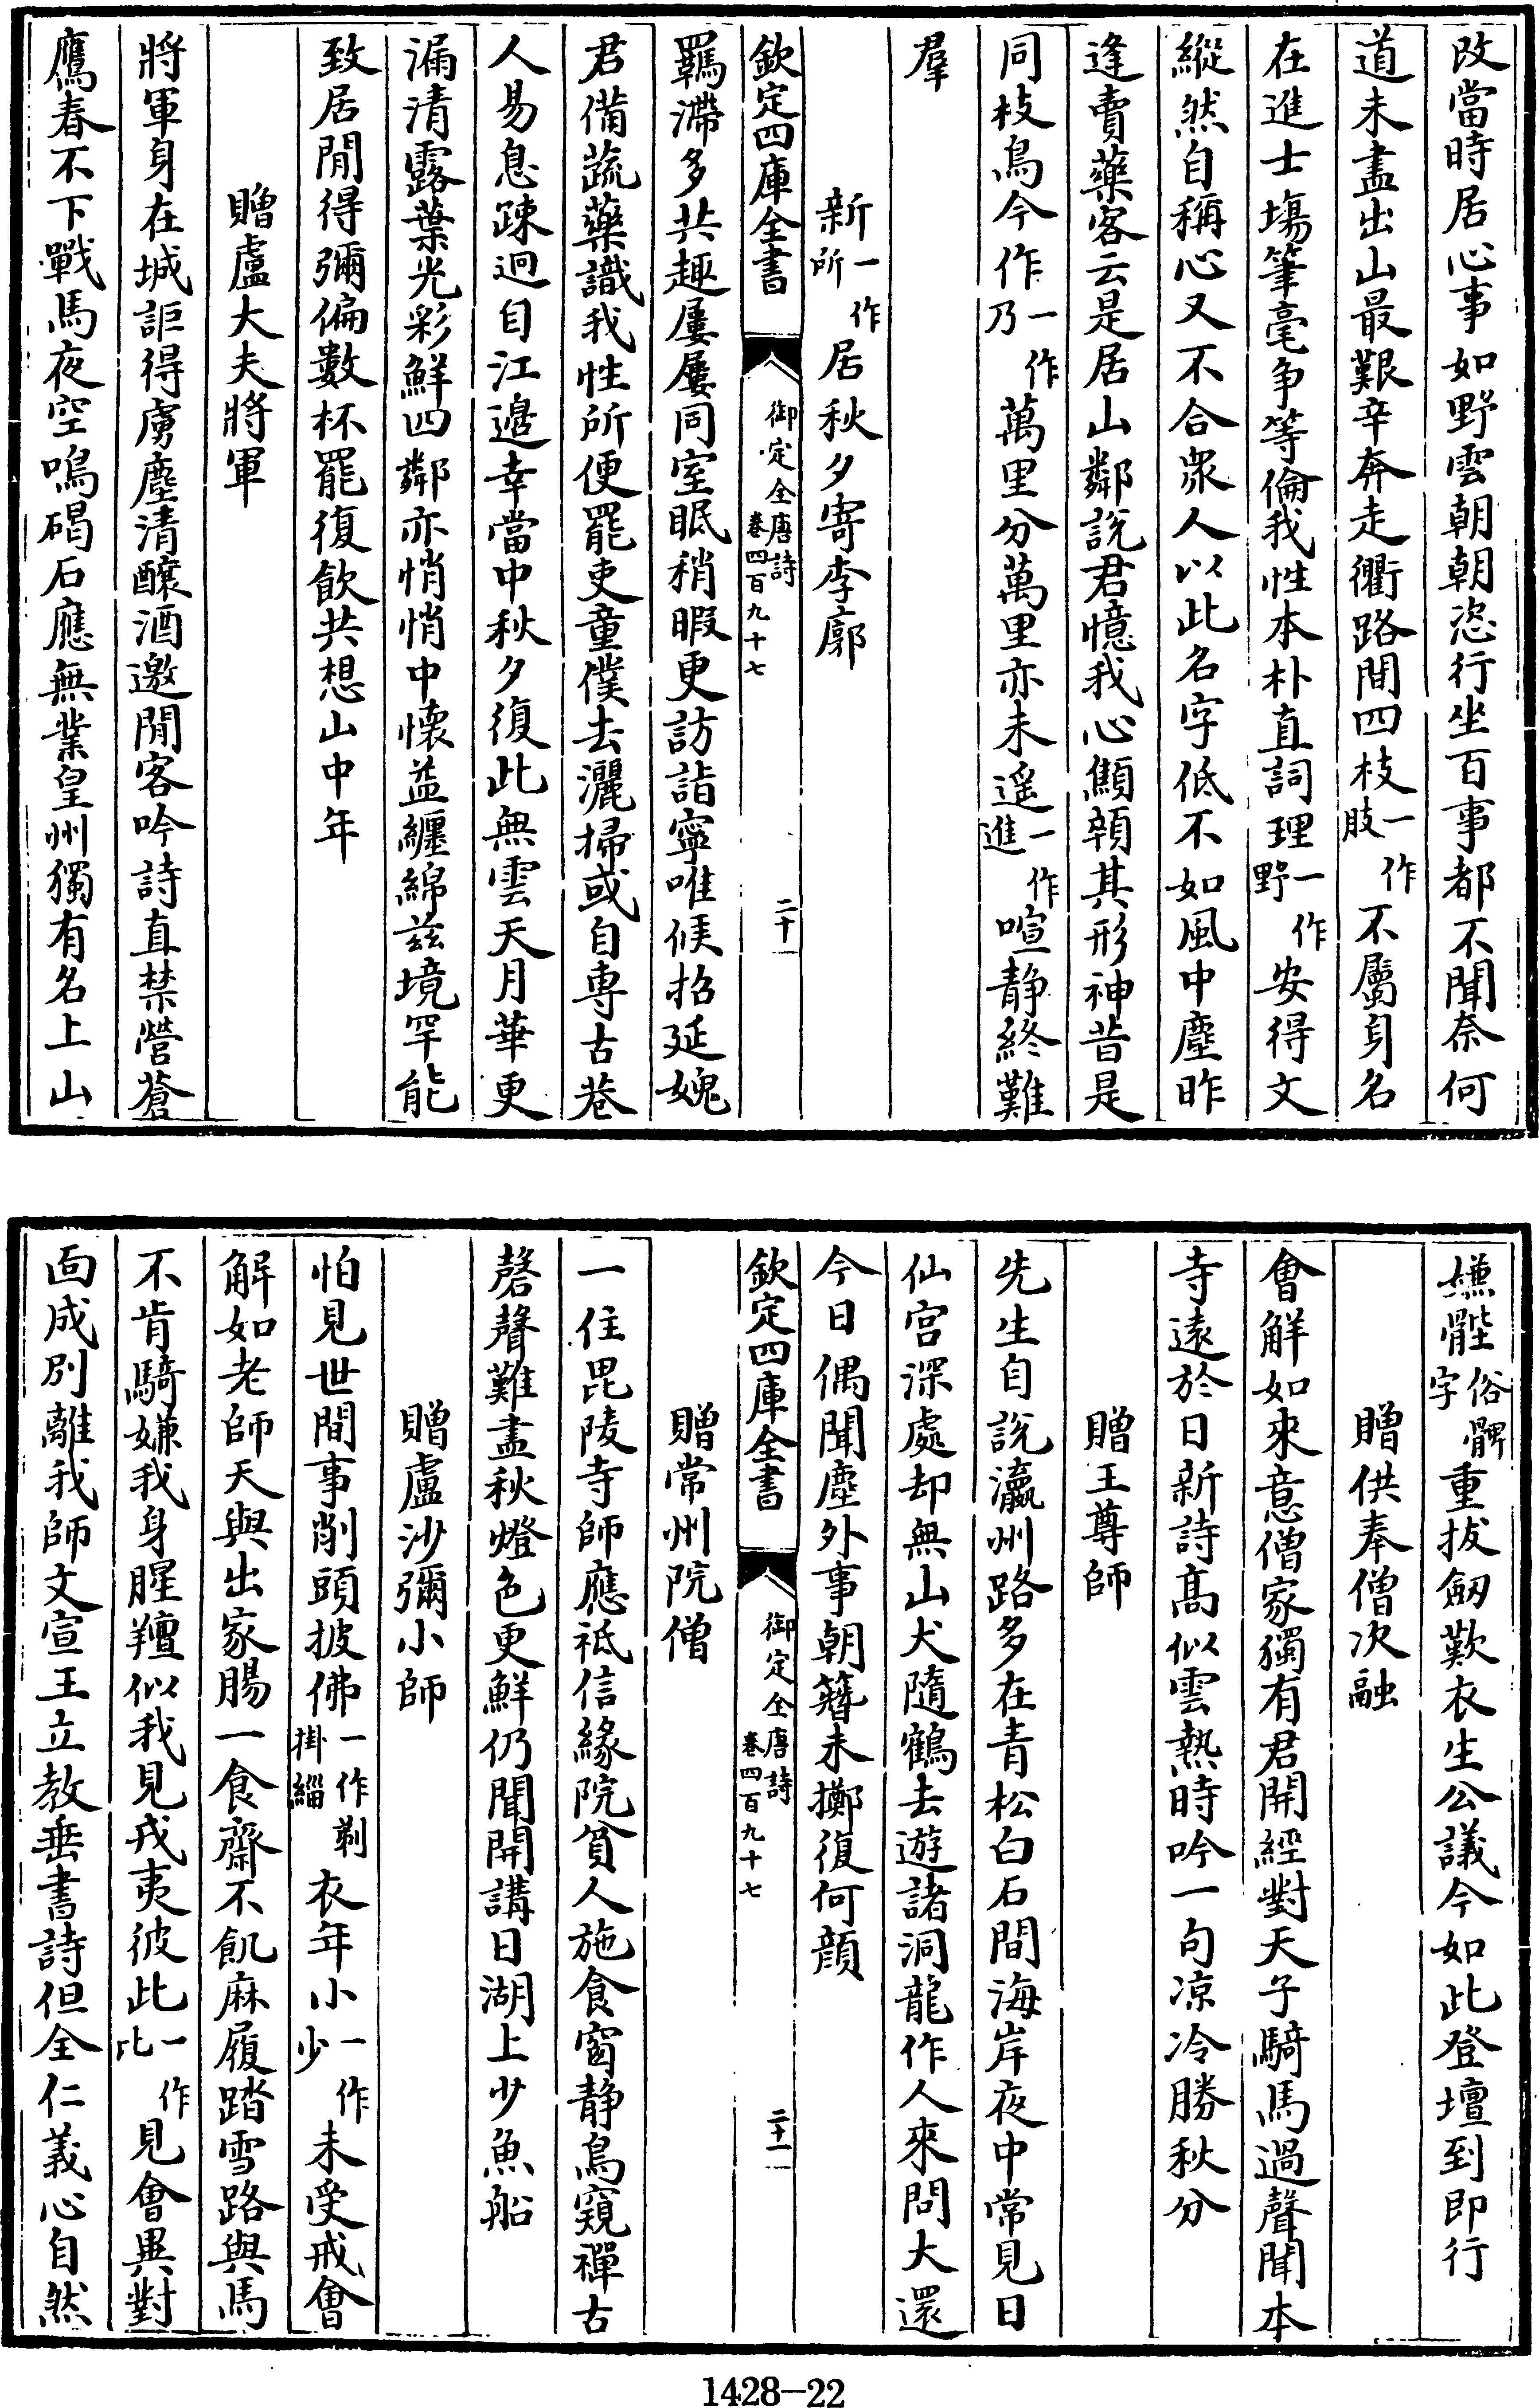 改當時居心事如野雲朝朝恣行坐百事都不聞奈何
道未盡出山最艱辛奔走衢路間四枝一作肢不屬身名
在進士場筆毫爭等倫我性本朴直詞理一作野安得文
縱然自稱心又不合衆人以此名字低不如風中塵昨
逢賣藥客云是居山鄰說君憶我心顦顇其形神昔是
同枝鳥今作一作乃萬里分萬里亦未遥一作進喧静終難
羣
新一作所居秋夕寄李廓
欽定四庫全書
御定全唐詩
卷四百九十七
二十
羈滯多共趣屢屢同室眠稍暇更訪詣寧唯候招延媿
君備蔬藥識我性所便罷吏童僕去灑掃或自專古巷
人易息疎迥自江邉幸當中秋夕復此無雲天月華更
漏清露葉光彩鮮四鄰亦悄悄中懷益纏綿兹境罕能
致居閒得彌偏數杯罷復飲共想山中年
贈盧大夫將軍
將軍身在城詎得虜塵清釀酒邀閒客吟詩直禁營蒼
鷹春不下戰馬夜空鳴碣石應無業皇州獨有名上山
嫌髀俗髀字重拔劒歎衣生公議今如此登壇到即行
贈供奉僧次融
會解如來意僧家獨有君開經對天子騎馬過聲聞本
寺遠於日新詩髙似雲熱時吟一句凉冷勝秋分
贈王尊師
先生自說瀛州路多在青松白石間海岸夜中常見日
仙宫深處却無山犬隨鶴去遊諸洞龍作人來問大還
今日偶聞塵外事朝簪未擲復何顔
欽定四庫全書
御定全唐詩
卷四百九十七
二十一
贈常州院僧
一住毘陵寺師應祗信緣院貧人施食窗静鳥窺禪古
磬聲難盡秋燈色更鮮仍聞開講日湖上少魚船
贈盧沙彌小師
怕見世間事削頭披佛一作剃掛緇衣年小一作少未受戒會
解如老師天與出家腸一食齋不飢麻履踏雪路與馬
不肯騎嫌我身腥羶似我見戎夷彼此一作比見會異對
面成别離我師文宣王立教垂書詩但全仁義心自然
1428—22